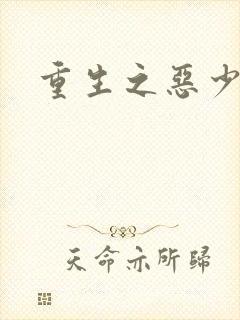 重生之惡少
天命亦所歸